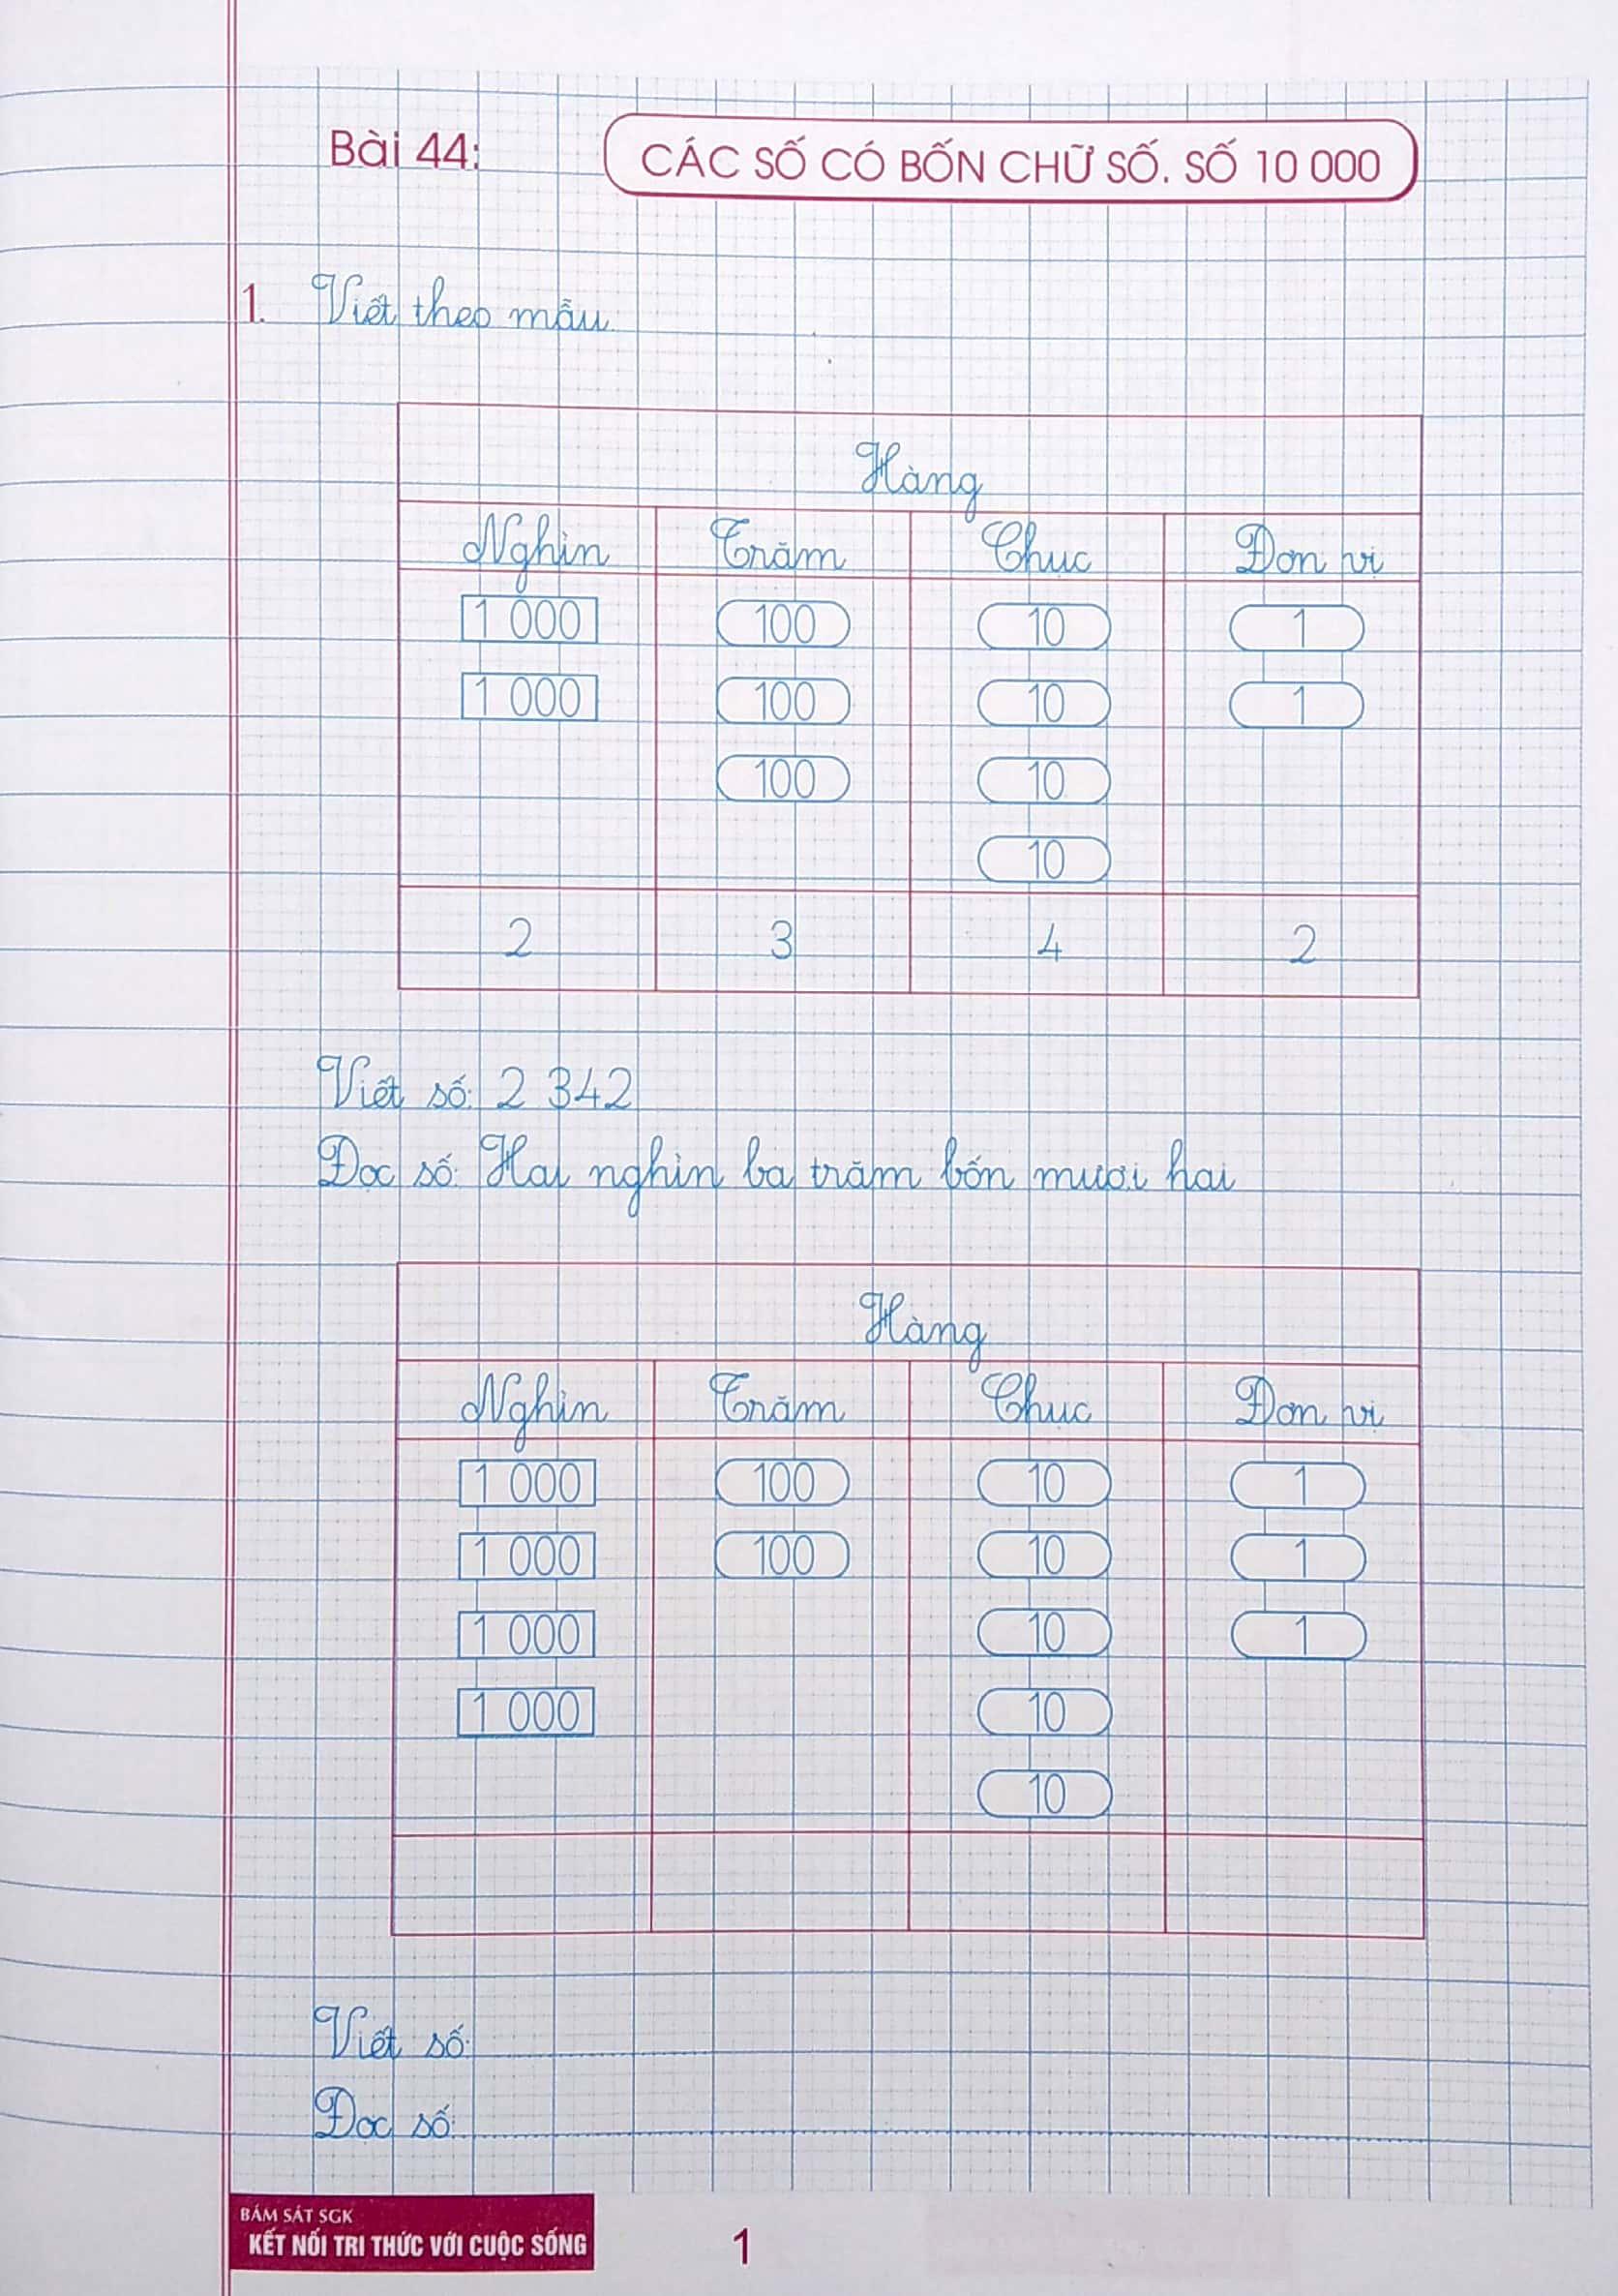 Bài 44:
CÁC SỐ CÓ BỐN CHỮ SỐ. SỐ 10 000
1. Viết theo mẫu.
Hàng
Nghìn Trăm Chục Đơn vị
1 000 100 10 1
1 000 100 10 1
100 10
10
2 3 4 2
Viết số: 2 342
Đọc số: Hai nghìn ba trăm bốn mươi hai
Hàng
Nghìn Trăm Chục Đơn vị
1 000 100 10 1
1 000 100 10 1
1 000 10 1
1 000 10
10
Viết số:
Đọc số:
BÁM SÁT SGK
KẾT NỐI TRI THỨC VỚI CUỘC SỐNG
1